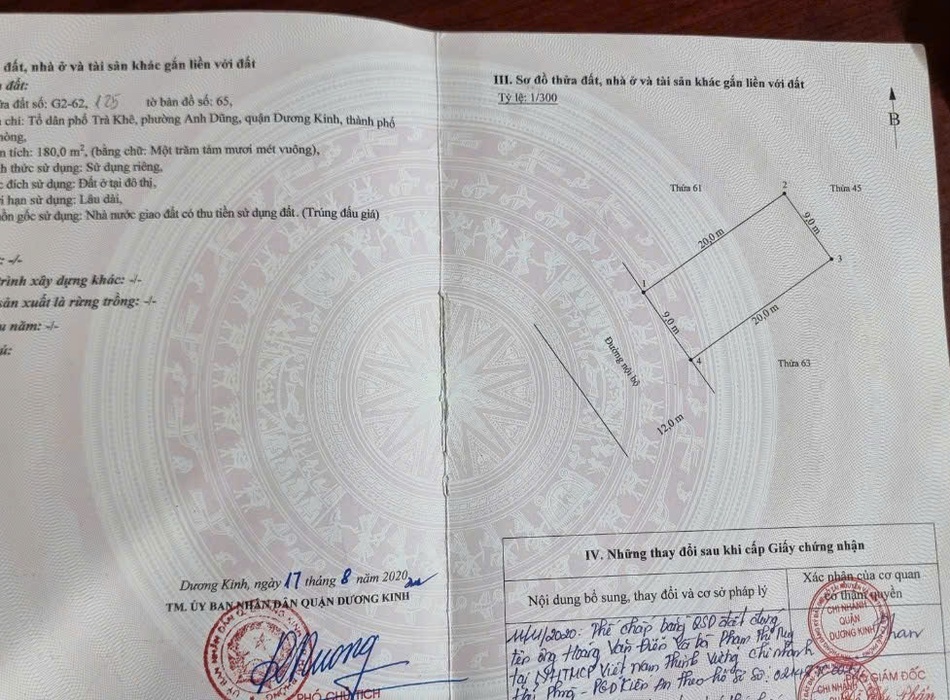 đất, nhà ở và tài sản khác gắn liền với đất
đất:
ửa đất số: G2-62, 125 tờ bản đồ số: 65,
chỉ: Tổ dân phố Trà Khê, phường Anh Dũng, quận Dương Kinh, thành phố
hòng,
n tích: 180,0 m², (bằng chữ: Một trăm tám mươi mét vuông),
h thức sử dụng: Sử dụng riêng,
c đích sử dụng: Đất ở tại đô thị,
i hạn sử dụng: Lâu dài,
uồn gốc sử dụng: Nhà nước giao đất có thu tiền sử dụng đất. (Trúng đấu giá)
: -/-
trình xây dựng khác: -/-
sản xuất là rừng trồng: -/-
u năm: -/-
ú:
Dương Kinh, ngày 17 tháng 8 năm 2020
TM. ỦY BAN NHÂN DÂN QUẬN DƯƠNG KINH
PHÓ CHỦ TỊCH
III. Sơ đồ thửa đất, nhà ở và tài sản khác gắn liền với đất
Tỷ lệ: 1/300
B
Thửa 61
2
Thửa 45
20,0 m
9,0 m
3
1
9,0 m
20,0 m
4
Thửa 63
Đường nội bộ
12,0 m
IV. Những thay đổi sau khi cấp Giấy chứng nhận
Nội dung bổ sung, thay đổi và cơ sở pháp lý
Xác nhận của cơ quan
có thẩm quyền
11/11/2020: Thế chấp bằng QSD đất đứng
tên ông Hoàng Văn Điển và bà Phạm Thị
tại NHTMCP Việt Nam Thịnh Vượng chi nhánh
Hải Phòng - PGD Kiến An theo hồ sơ số:
CHI NHÁNH
QUẬN
DƯƠNG KINH
GIÁM ĐỐC
CHI NHÁNH